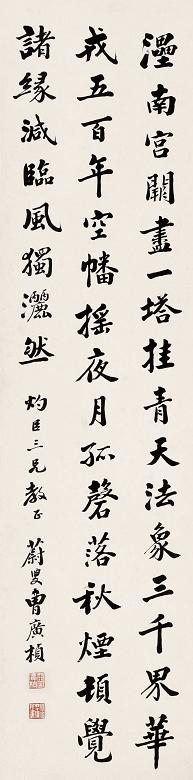 灅南宫闕盡一塔挂青天法象三千界華
戎五百年空幡摇夜月孤磬落秋煙頓覺
諸緣減臨風獨灑然
灼臣三兄教正
蔚叟曾廣楨